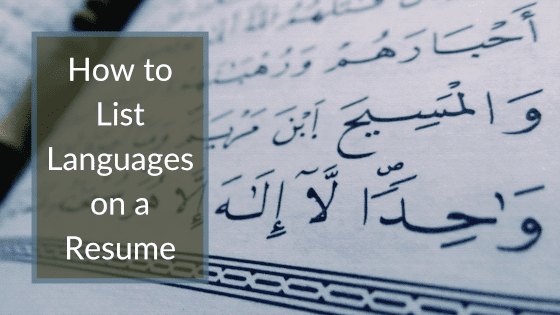 How to
List
Languages
on a
Resume
أَحْبَارَهُمْ
وَالْمَسِيحَ ابْنَ مَرْيَمَ
وَٰحِدًا لَّآ إِلَٰهَ إِلَّا